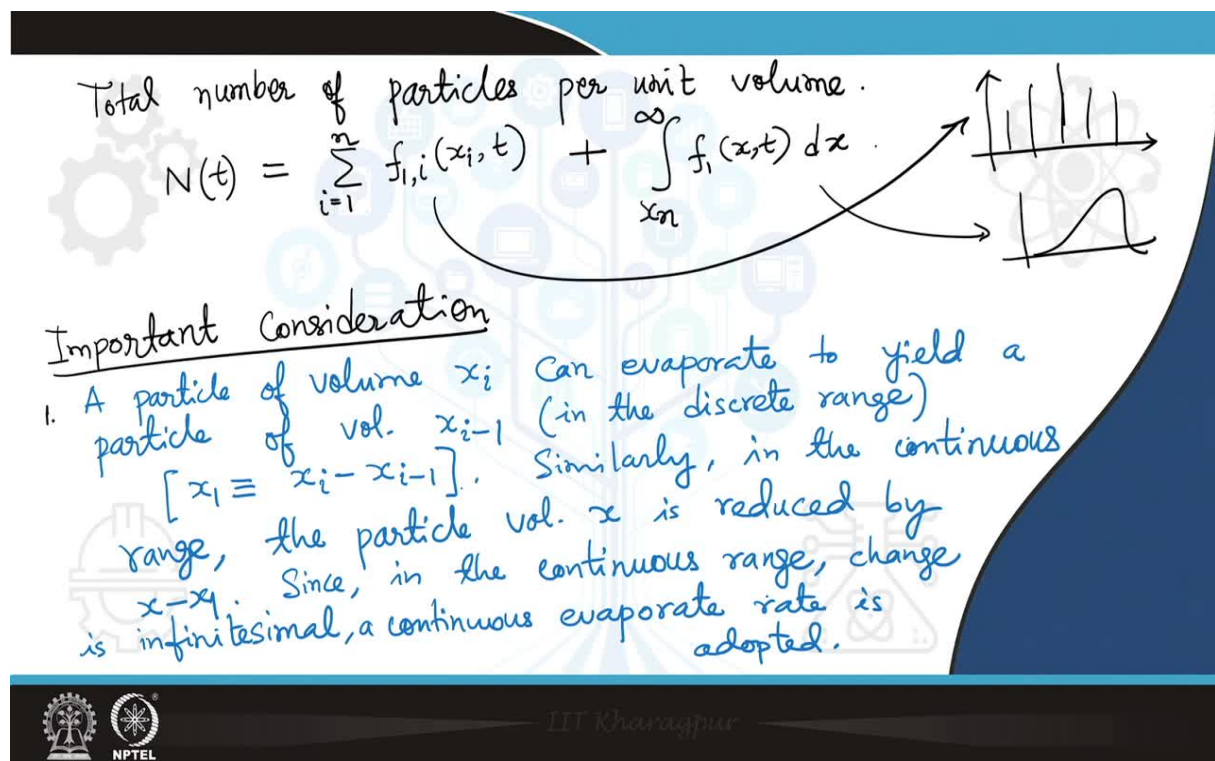 Total number of particles per unit volume.
N(t) = ∑_{i=1}^{n} f_{1,i}(x_i, t) + ∫_{x_n}^{∞} f_1(x,t) dx.
Important Consideration
1. A particle of volume x_i can evaporate to yield a
particle of vol. x_{i-1} (in the discrete range)
[x_1 ≡ x_i - x_{i-1}]. Similarly, in the continuous
range, the particle vol. x is reduced by
x - x_1. Since, in the continuous range, change
is infinitesimal, a continuous evaporate rate is
adopted.
IIT Kharagpur
NPTEL